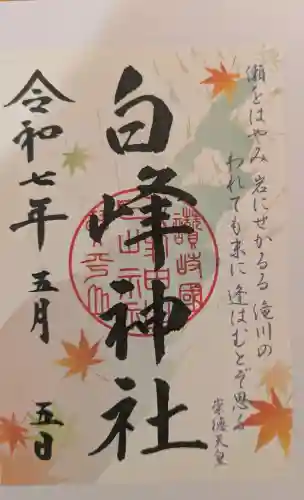 瀬をはやみ 岩にせかるる 滝川の
われても末に 逢はむとぞ思ふ
崇徳天皇
白峰神社
令和七年 五月 五日